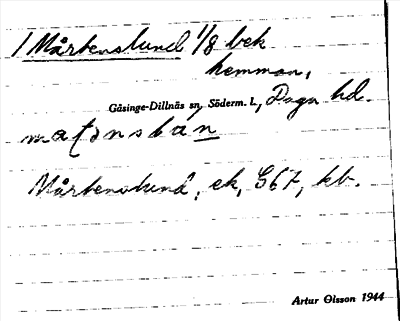 1 Mårtenslund 1/8 bek
hemman,
Gåsinge-Dillnäs sn, Söderm. l., Daga hd.
Mårtenslund, ek, G67, kb.
Artur Olsson 1944